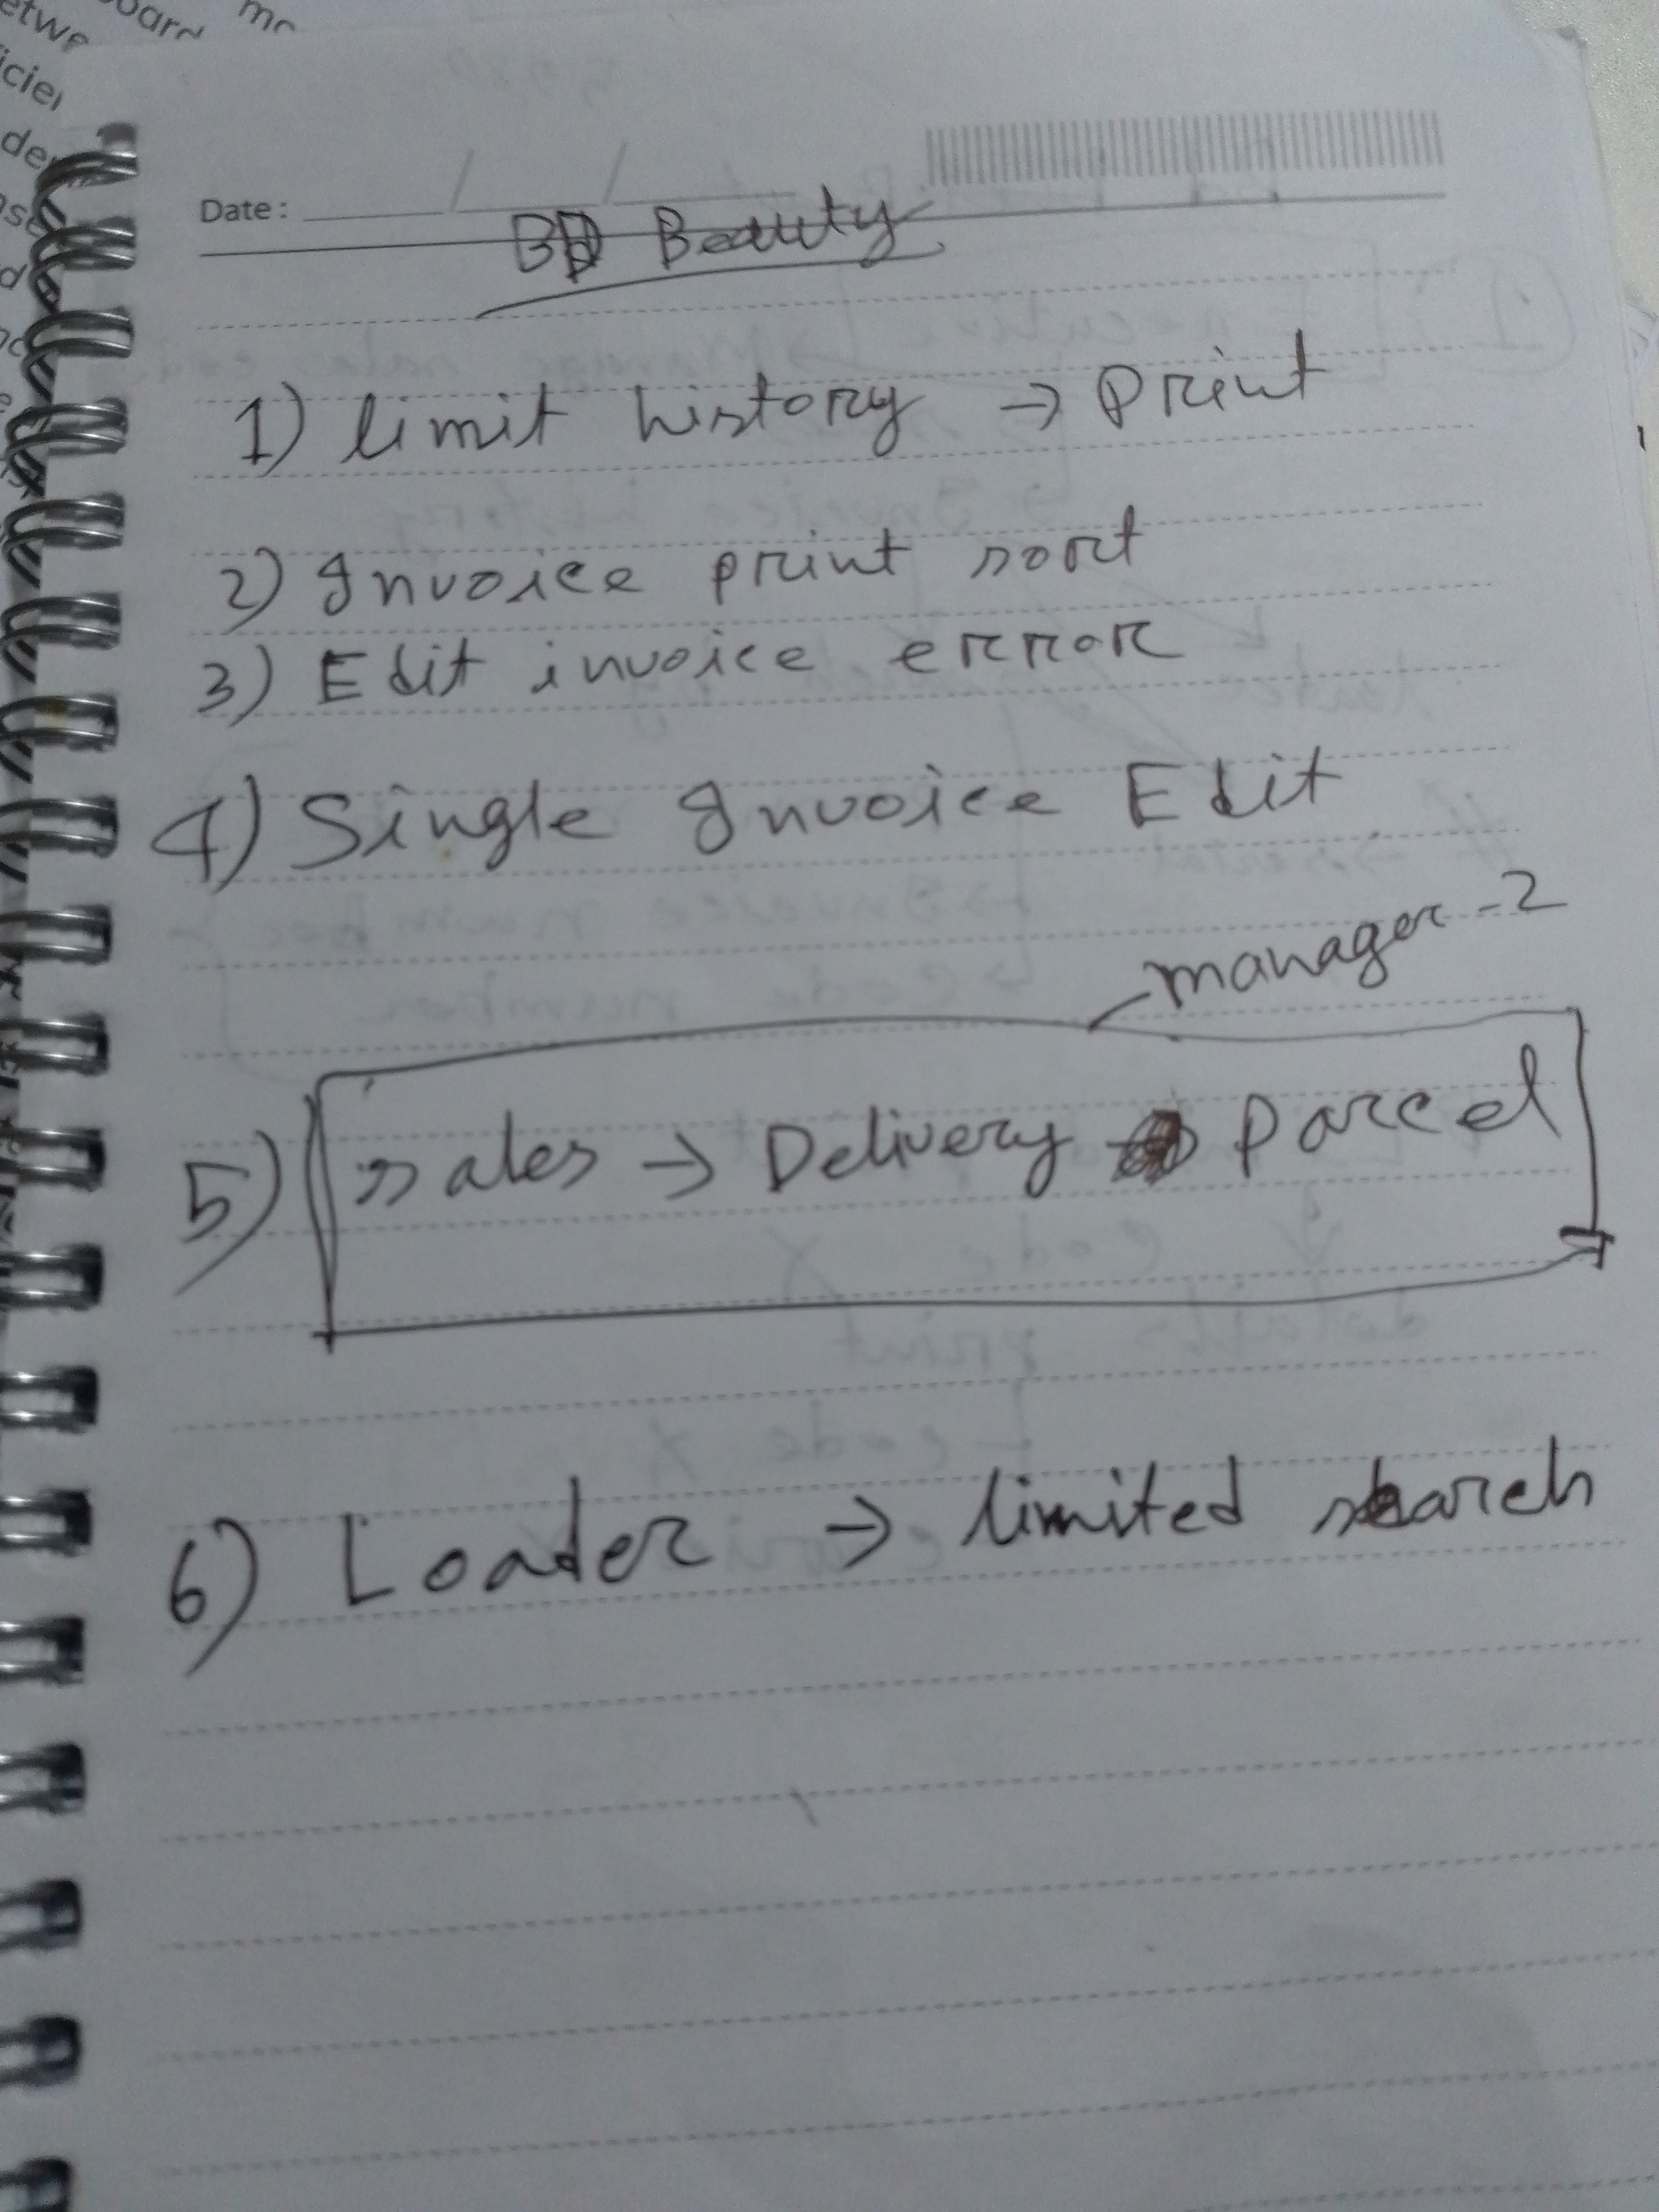 Date: / /
BD Beauty
1) limit history → Print
2) Invoice print sort
3) Edit invoice error
4) Single Invoice Edit
manager-2
5) sales → Delivery Parcel
6) Loader → limited search